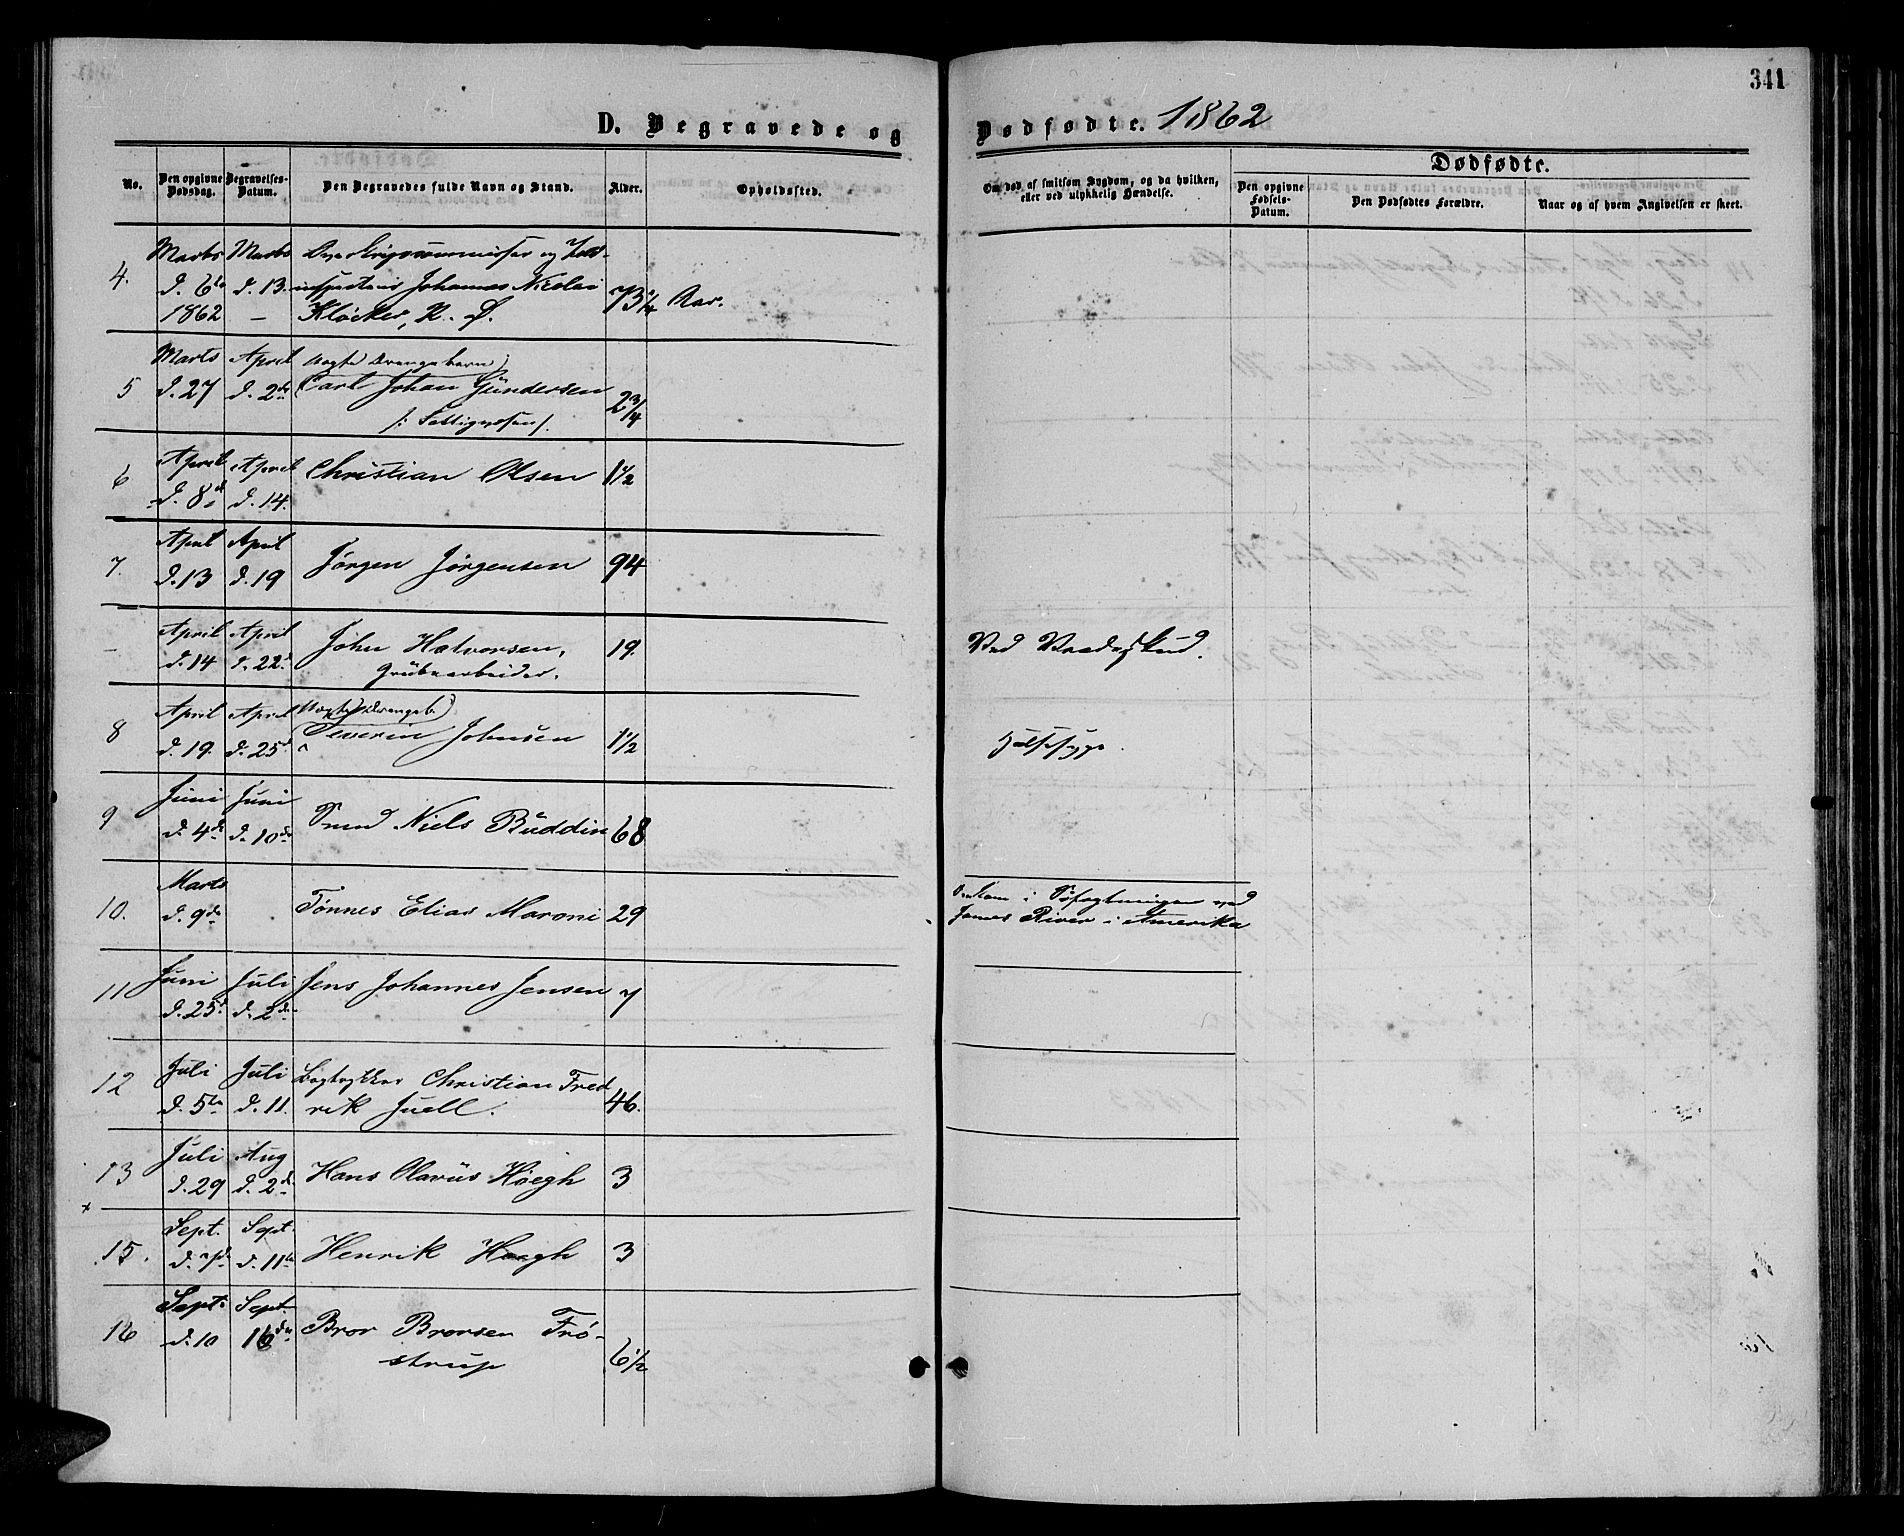 341
D. Begravede og Dødfødte. 1862
No.
Den opgivne Dødsdag.
Begravelses-Datum.
Den Begravedes fulde Navn og Stand.
Alder.
Opholdssted.
Om død af smitsom Sygdom, og da hvilken,
eller ved ulykkelig Hændelse.
Dødfødte.
Den opgivne Fødsels-Datum.
Den Dødfødtes Forældre.
Naar og af hvem Angivelsen er skeet.
4. Marts d. 6te 1862 Marts d. 13. –
Johannes Nicolai
Kløcker, R. O. 73 1/4 Aar.
5 Marts d. 27 April d. 2de
Carl Johan Gundersen 2 3/4
6 April d. 8de April d. 14. Christian Olsen 1 1/2
7. April d. 13 April d. 19 Jørgen Jørgensen 94
– April d. 14 April d. 22de John Halvorsen, 19.
Grubearbeider.
Ved Vaadeskud.
8 April d. 19. April d. 25de
Severin Johnsen 1 1/2
Halssyge.
9 Juni d. 4de Juni d. 10de Smed Niels Buddin 68
10. Marts d. 9de Tønnes Elias Maroni 29
Omkom i Søfægtningen ved
James River i Amerika
11 Juni d. 25de Juli d. 2de Jens Johannes Jensen 7
12 Juli d. 5te Juli d. 11. Bogtrykker Christian Fred
rik Juell. 46.
13 Juli d. 29 Aug d. 2de Hans Olavus Høegh 3
15. Sept. d. 7de Sept. d. 11te Henrik Høegh 3
16 Sept. d. 10 Sept. 16de Bror Brorsen Frø-
strup 6 1/2